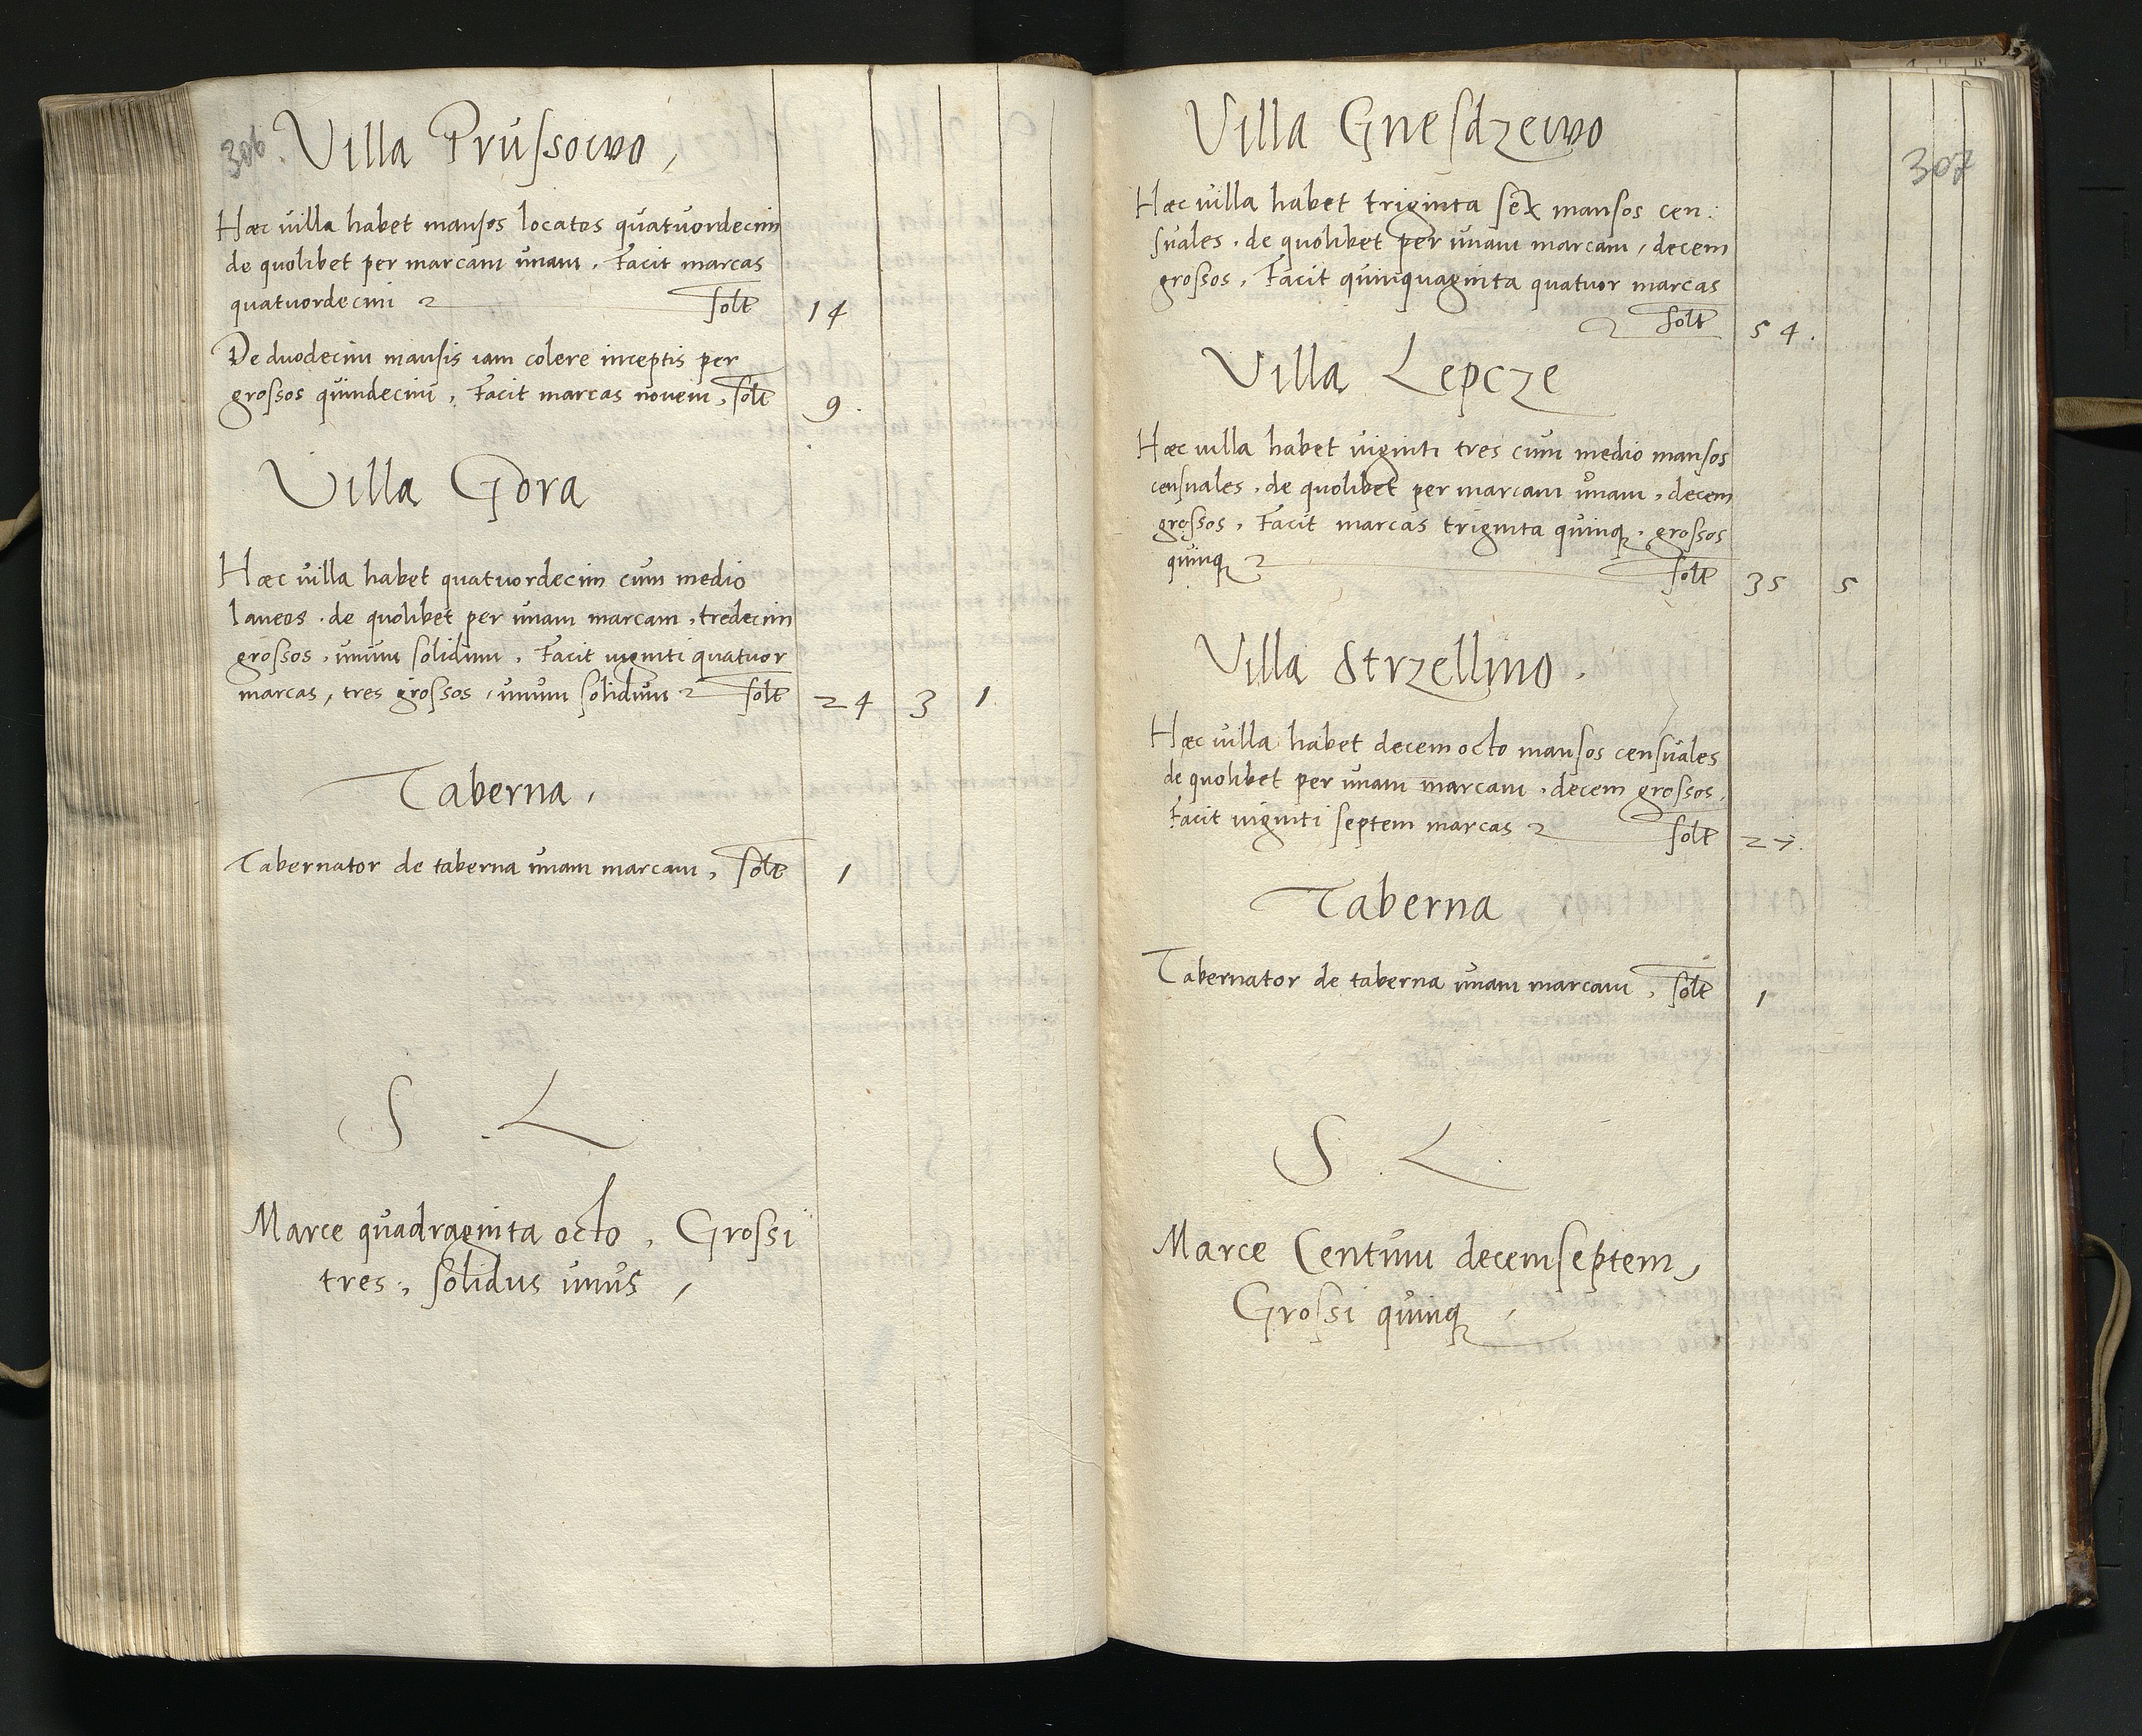 306.
Villa Prussowo,
Hæc villa habet mansos locatos quatuordecim
de quolibet per marcam unam. Facit marcas
quatuordecim solt 14
De duodecim mansis iam colere inceptis per
grossos quindecim, Facit marcas novem, solt 9.
Villa Gora
Hæc villa habet quatuordecim cum medio
laneos. de quolibet per unam marcam, tredecim
grossos, unum solidum. Facit viginti quatuor
marcas, tres grossos, unum solidum solt 24 3 1
Taberna,
Tabernator de taberna unam marcam, solt 1
S L
Marce quadraginta octo, Grossi
tres, solidus unus,
307
Villa Gnesdzewo
Hæc villa habet triginta sex mansos cen:
suales. de quolibet per unam marcam, decem
grossos. Facit quinquaginta quatuor marcas
solt 54.
Villa Lepcze
Hæc villa habet viginti tres cum medio mansos
censuales. de quolibet per marcam unam, decem
grossos. Facit marcas triginta quinq, grossos
quinq solt 35 5
Villa Strzellino.
Hæc villa habet decem octo mansos censuales
de quolibet per unam marcam, decem grossos.
Facit viginti septem marcas solt 27.
Taberna
Tabernator de taberna unam marcam, solt 1
S L
Marce Centum decemseptem,
Grossi quinq